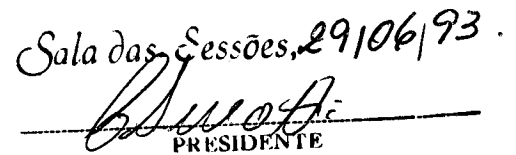 Sala das Sessões, 29/06/93.
PRESIDENTE